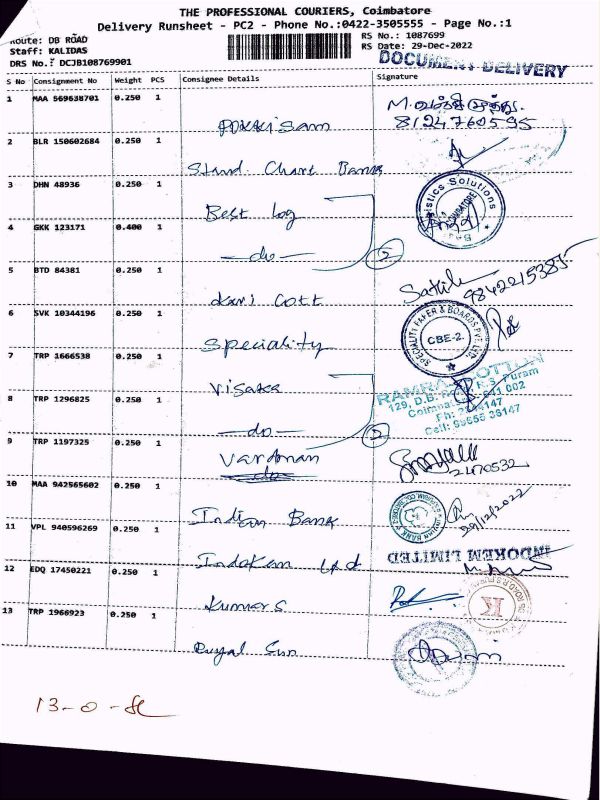 THE PROFESSIONAL COURIERS, Coimbatore
Delivery Runsheet - PC2 - Phone No.:0422-3505555 - Page No.:1
Route: DB ROAD
RS No.: 1087699
Staff: KALIDAS
RS Date: 29-Dec-2022
DRS No.: DCJB108769901
DOCUMENT DELIVERY
S No Consignment No Weight PCS Consignee Details Signature
1 MAA 569638701 0.250 1
8124760595
2 BLR 150602684 0.250 1
Stand Chart Bank
3 DHN 48936 0.250 1
Best Log
4 GKK 123171 0.400 1
do
2
5 BTD 84381 0.250 1
9842215385
6 SVK 10344196 0.250 1
Speciality
SPECIALITY PAPER & BOARDS PVT
CBE-2
7 TRP 1666538 0.250 1
8 TRP 1296825 0.250 1
do
2
9 TRP 1197325 0.250 1
Vardman
2470532
10 MAA 942565602 0.250 1
Indian Bank
29/12/2022
11 VPL 940596269 0.250 1
INDOKEM LIMITED
12 EDQ 17450221 0.250 1
Kumars
K
13 TRP 1966923 0.250 1
Royal Sun
13-0-